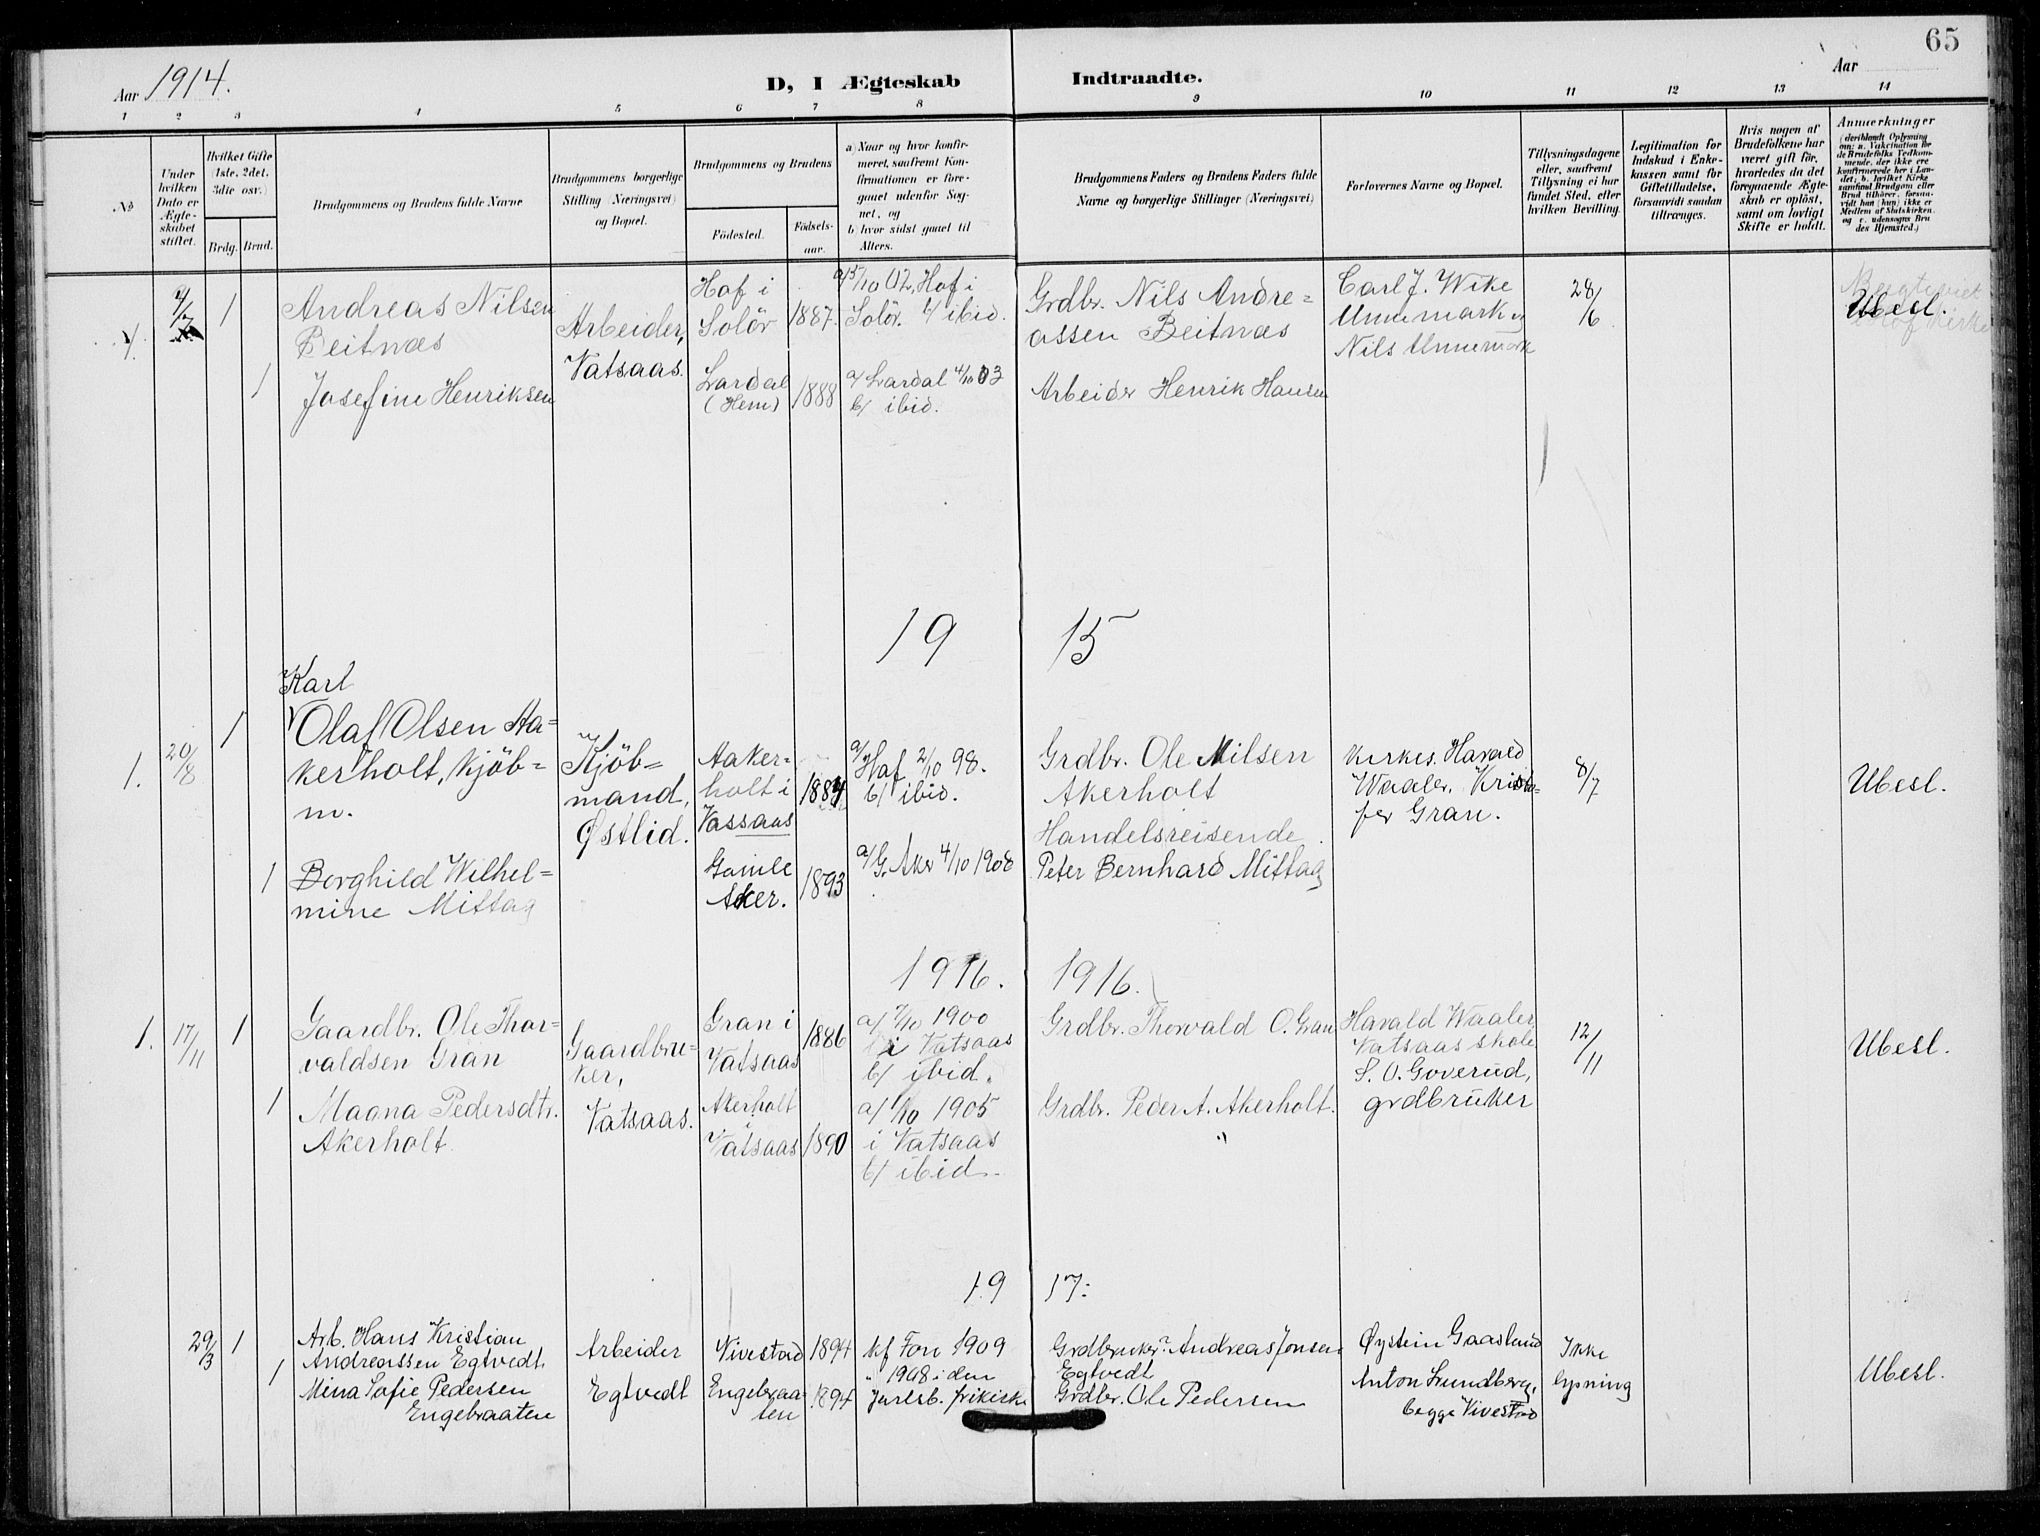 65
Aar 1914.
D, I Ægteskab Indtraadte.
Aar
1 2 3 4 5 6 7 8 9 10 11 12 13 14
No
Under hvilken Dato er Ægteskabet stiftet.
Hvilket Gifte (1ste, 2det, 3die osv.)
Brdg. Brud.
Brudgommens og Brudens fulde Navne
Brudgommens borgerlige Stilling (Næringsvei) og Bopæl.
Brudgommens og Brudens
Fødested. Fødselsaar.
a) Naar og hvor konfirmeret, saafremt Konfirmationen er foregaaet udenfor Sognet, og
b) hvor sidst gaaet til Alters.
Brudgommens Faders og Brudens Faders fulde Navne og borgerlige Stillinger (Næringsvei)
Forlovernes Navne og Bopæl.
Tillysningsdagene eller, saafremt Tillysning ei har fundet Sted, efter hvilken Bevilling.
Legitimation for Indskud i Enkekassen samt for Giftetilladelse, forsaavidt saadan tiltrænges.
Hvis nogen af Brudefolkene har været gift før, hvorledes da det foregaaende Ægteskab er opløst, samt om lovligt Skifte er holdt.
Anmærkninger
(deriblandt Oplysning om: a. Vakcination for de Brudefolks Vedkommende, der ikke ere konfirmerede her i Landet; b. hvilket Kirkesamfund Brudgom eller Brud tilhører, forsaavidt han (hun) ikke er Medlem af Statskirken, og c. udensogns Brudes Hjemsted.)
4. 9/7 1
Andreas Nilsen
Beitnæs
Arbeider,
Vatsaas.
Hof i
Solör
1887.
a/ 5/10 02, Hof i
Solör. b/ ibid.
Grdbr. Nils Andre=
assen Beitnæs
Carl J. Wike
Unnemark og
Nils Unnemark
28/6
Ubesl.
1
Josefine Henriksen
Lardal
(Hem)
1888
a/ Lardal 4/10 03
b/ ibid.
Arbeider Henrik Hansen
19 15
1. 20/8 1
Karl
Olaf Olsen Aa=
kerholt, kjöb=
m.
Kjöb=
mand,
Østlid.
Aaker=
holt i
Vassaas
1884
a/ Hof 2/10 98.
b/ ibid.
Grdbr. Ole Nilsen
Akerholt
Kirkes. Havald
Waaler, Kristo=
fer Gran.
8/7
Ubesl.
1
Borghild Wilhel=
mine Mittag
Gamle
Aker.
1893
a/ G. Aker 4/10 1908
Handelsreisende
Peter Bernhard Mittag
1916. 1916.
1. 17/11 1
Gaardbr. Ole Thor=
valdsen Gran
Gaardbru=
ker,
Vatsaas.
Gran i
Vatsaas
1886
a/ 7/10 1900
i Vatsaas
b/ ibid.
Grdbr. Thorvald O. Gran
Havald Waaler
Vatsaas skole
S. O. Goverud,
grdbruker
12/11
Ubesl.
1
Magna Pedersdtr.
Akerholt.
Akerholt
i
Vatsaas
1890
a/ 1/10 1905
i Vatsaas
b/ ibid.
Grdbr. Peder A. Akerholt.
"
19 17.
29/3 1
Arb. Hans Kristian
Andreassen Egtvedt
Arbeider
Egtvedt
Vivestad
1894
kf Fon 1909
Grdbruker Andreas Jonsen
Egtvedt
Øystein Gaaslund
Anton Lundberg,
begge Vivestad
Ikke
lysning
Ubesl.
1
Mina Sofie Pedersen
Engebraaten
Engebraa=
ten
1894
" 1908 i den
Jarlsb. frikirke
Grdbr. Ole Pedersen